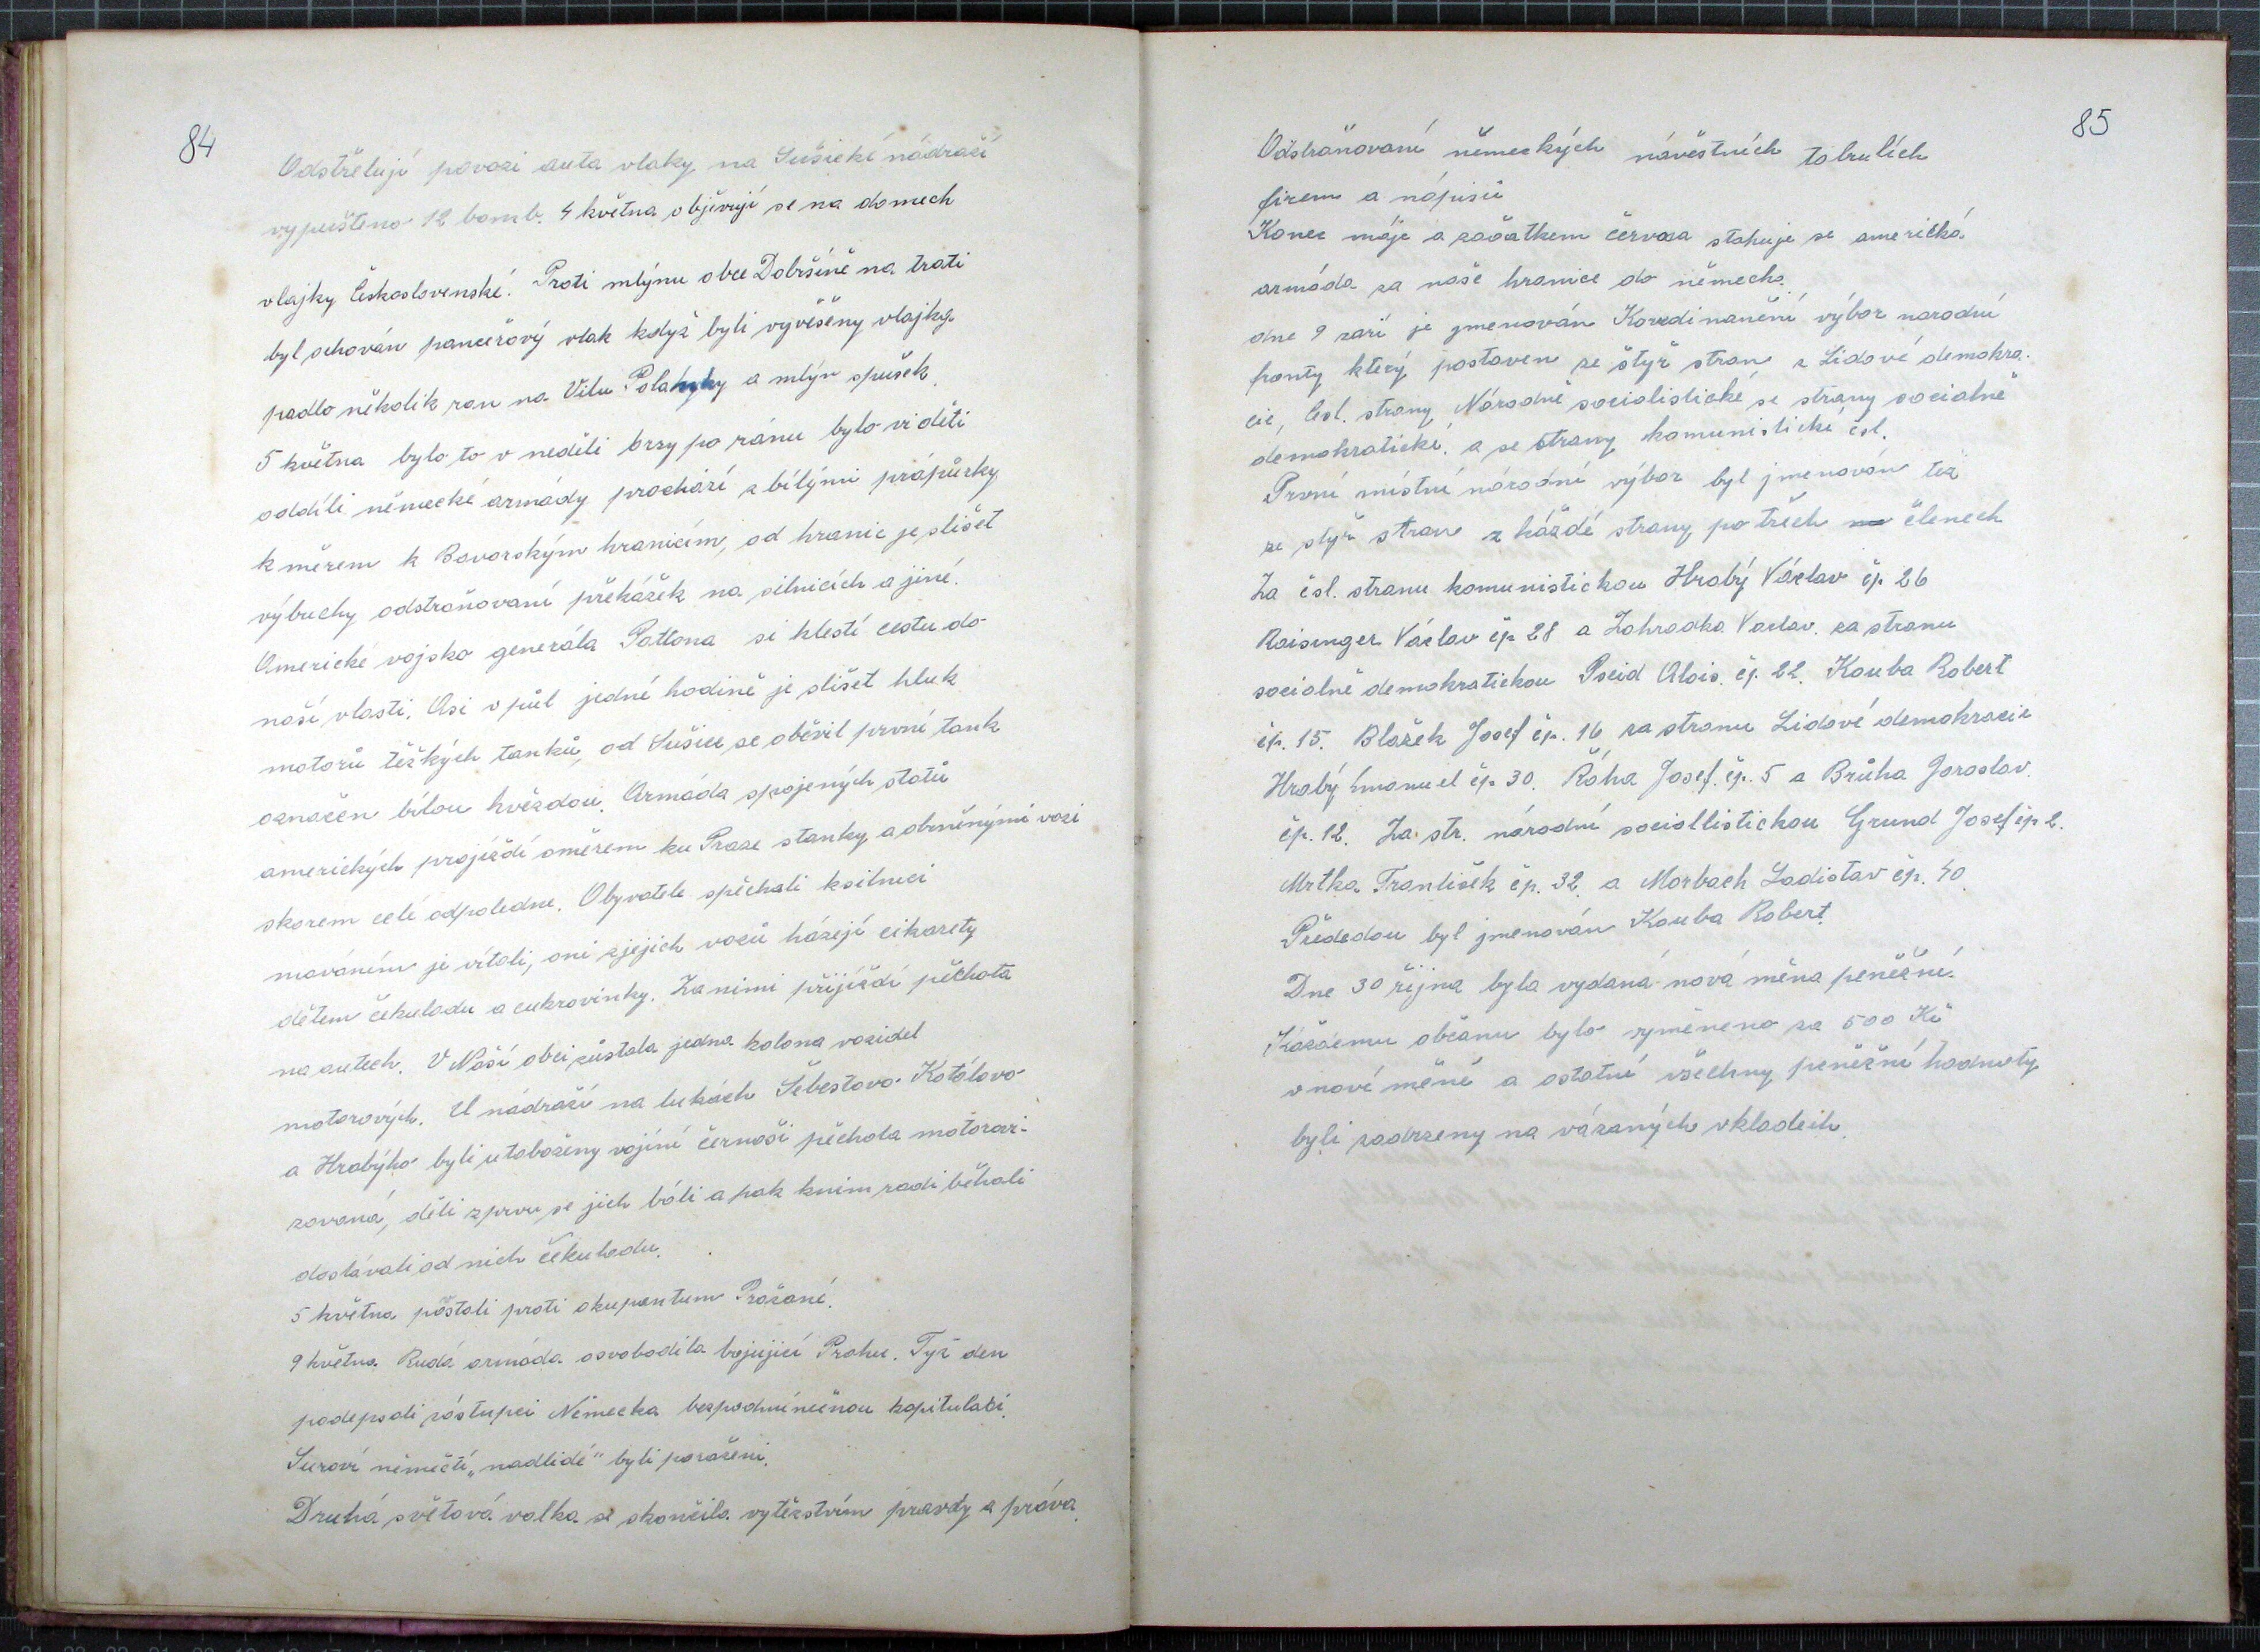 84
Odstřelují povozi auta vlaky, na Sušické nádraží
vypuštěno 12 bomb. 4 května objevují se na domech
vlajky Československé. Proti mlýnu obce Dobršíně na trati
byl schován pancéřový vlak když byli vyvěšeny vlajky
padlo několik ran na Vilu a mlýn spušek.
5 května bylo to v neděli brzy po ránu bylo viděti
oddíli německé armády prochází z bílými prápůrky
k měrem k Bavorským hranicím, od hranic je slišet
výbuchy odstraňovaní překážek na silnicích a jiné.
Americké vojsko generála Pattona si klestí cestu do
naší vlasti. Asi v půl jedné hodině je slišet hluk
motorů těžkých tanků, od Sušice se oběvil první tank
označen bílou hvězdou. Armáda spojených států
amerických projíždí směrem ku Praze stanky a obrněnými vozi
skorem celé odpoledne. Obyvatele spěchali ksilnici
maváním je vítali, oni zjejich vozů házejí cikarety
dětem čekuladu a cukrovinky. Za nimi přijíždí pěchota
na autech. V Naší obci zůstala jedna kolona vozidel
motorových. U nádraží na lukách Šebestovo Kotálovo
a Hrabýho byli utabořeny vojíní černoši pěchota motorir-
zovaná, děti zprvu se jich báli a pak knim radi běhali
dostávali od nich čekuladu.
5 května postali proti okupantum Pražané.
9 května Rudá armáda osvobodila bojující Prahu. Týž den
podepsali zástupci Německa bezpodmínečnou kapitulaci.
Suroví němečtí „nadlidé" byli poraženi.
Druhá světová valka se skončila vytězstvím pravdy a práva.
85
Odstraňovaní německých návěstních tabulích
firem a nápisů
Konec máje a začátkem června stahuje se americká
armáda za naše hranice do německa.
dne 9 září je jmenován Koredinanční výbor narodní
fronty který postaven ze štyř stran z Lidové demokra-
cie, čsl. strany Národně socialistické, se strany socialně
demokratické, a se strany komunistické čsl.
První místní národní výbor byl jmenován též
ze styř stran z káždé strany po třech členech
Za čsl. stranu komunistickou Hrabý Václav čp 26
Raisinger Václav čp 28 a Zahradka Vaclav. za stranu
socialně demokratickou Pscid Alois. čp. 22. Kouba Robert
čp. 15. Blažek Josef čp. 16 za stranu Lidové demokracie
Hrabý Emanuel čp 30. Řáha Josef. čp. 5 a Brůha Jaroslav.
čp. 12. Za str. národní sociallistickou Grund Josef čp 2.
Mrtka František čp. 32. a Morbach Ladislav čp. 40.
Předsedou byl jmenován Kouba Robert.
Dne 30 října byla vydaná nová měna peněžní.
Káždemu občanu bylo vyměneno za 500 Kč
v nové měně a ostatní všechny peněžní hodnoty
byli zadrzeny na vázaných vkladcih.